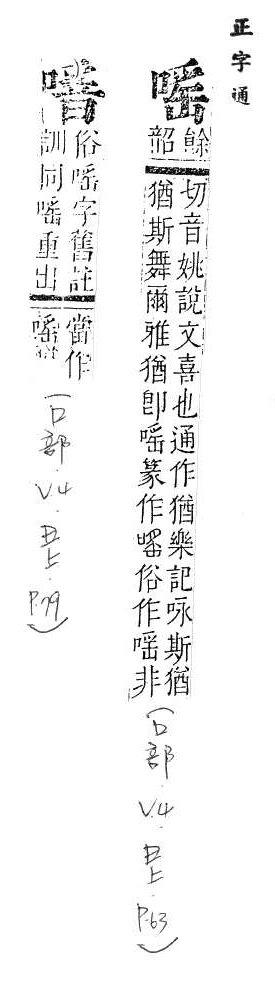 正字通
嗂
餘
韶
切音姚說文喜也通作猶樂記咏斯猶
猶斯舞爾雅猶卽嗂篆作㗛俗作嗂非
(口部.V.4.丑上.P.63)
俗嗂字舊註
訓同嗂重出
當作
嗂
(口部.V.4.丑上.P.79)